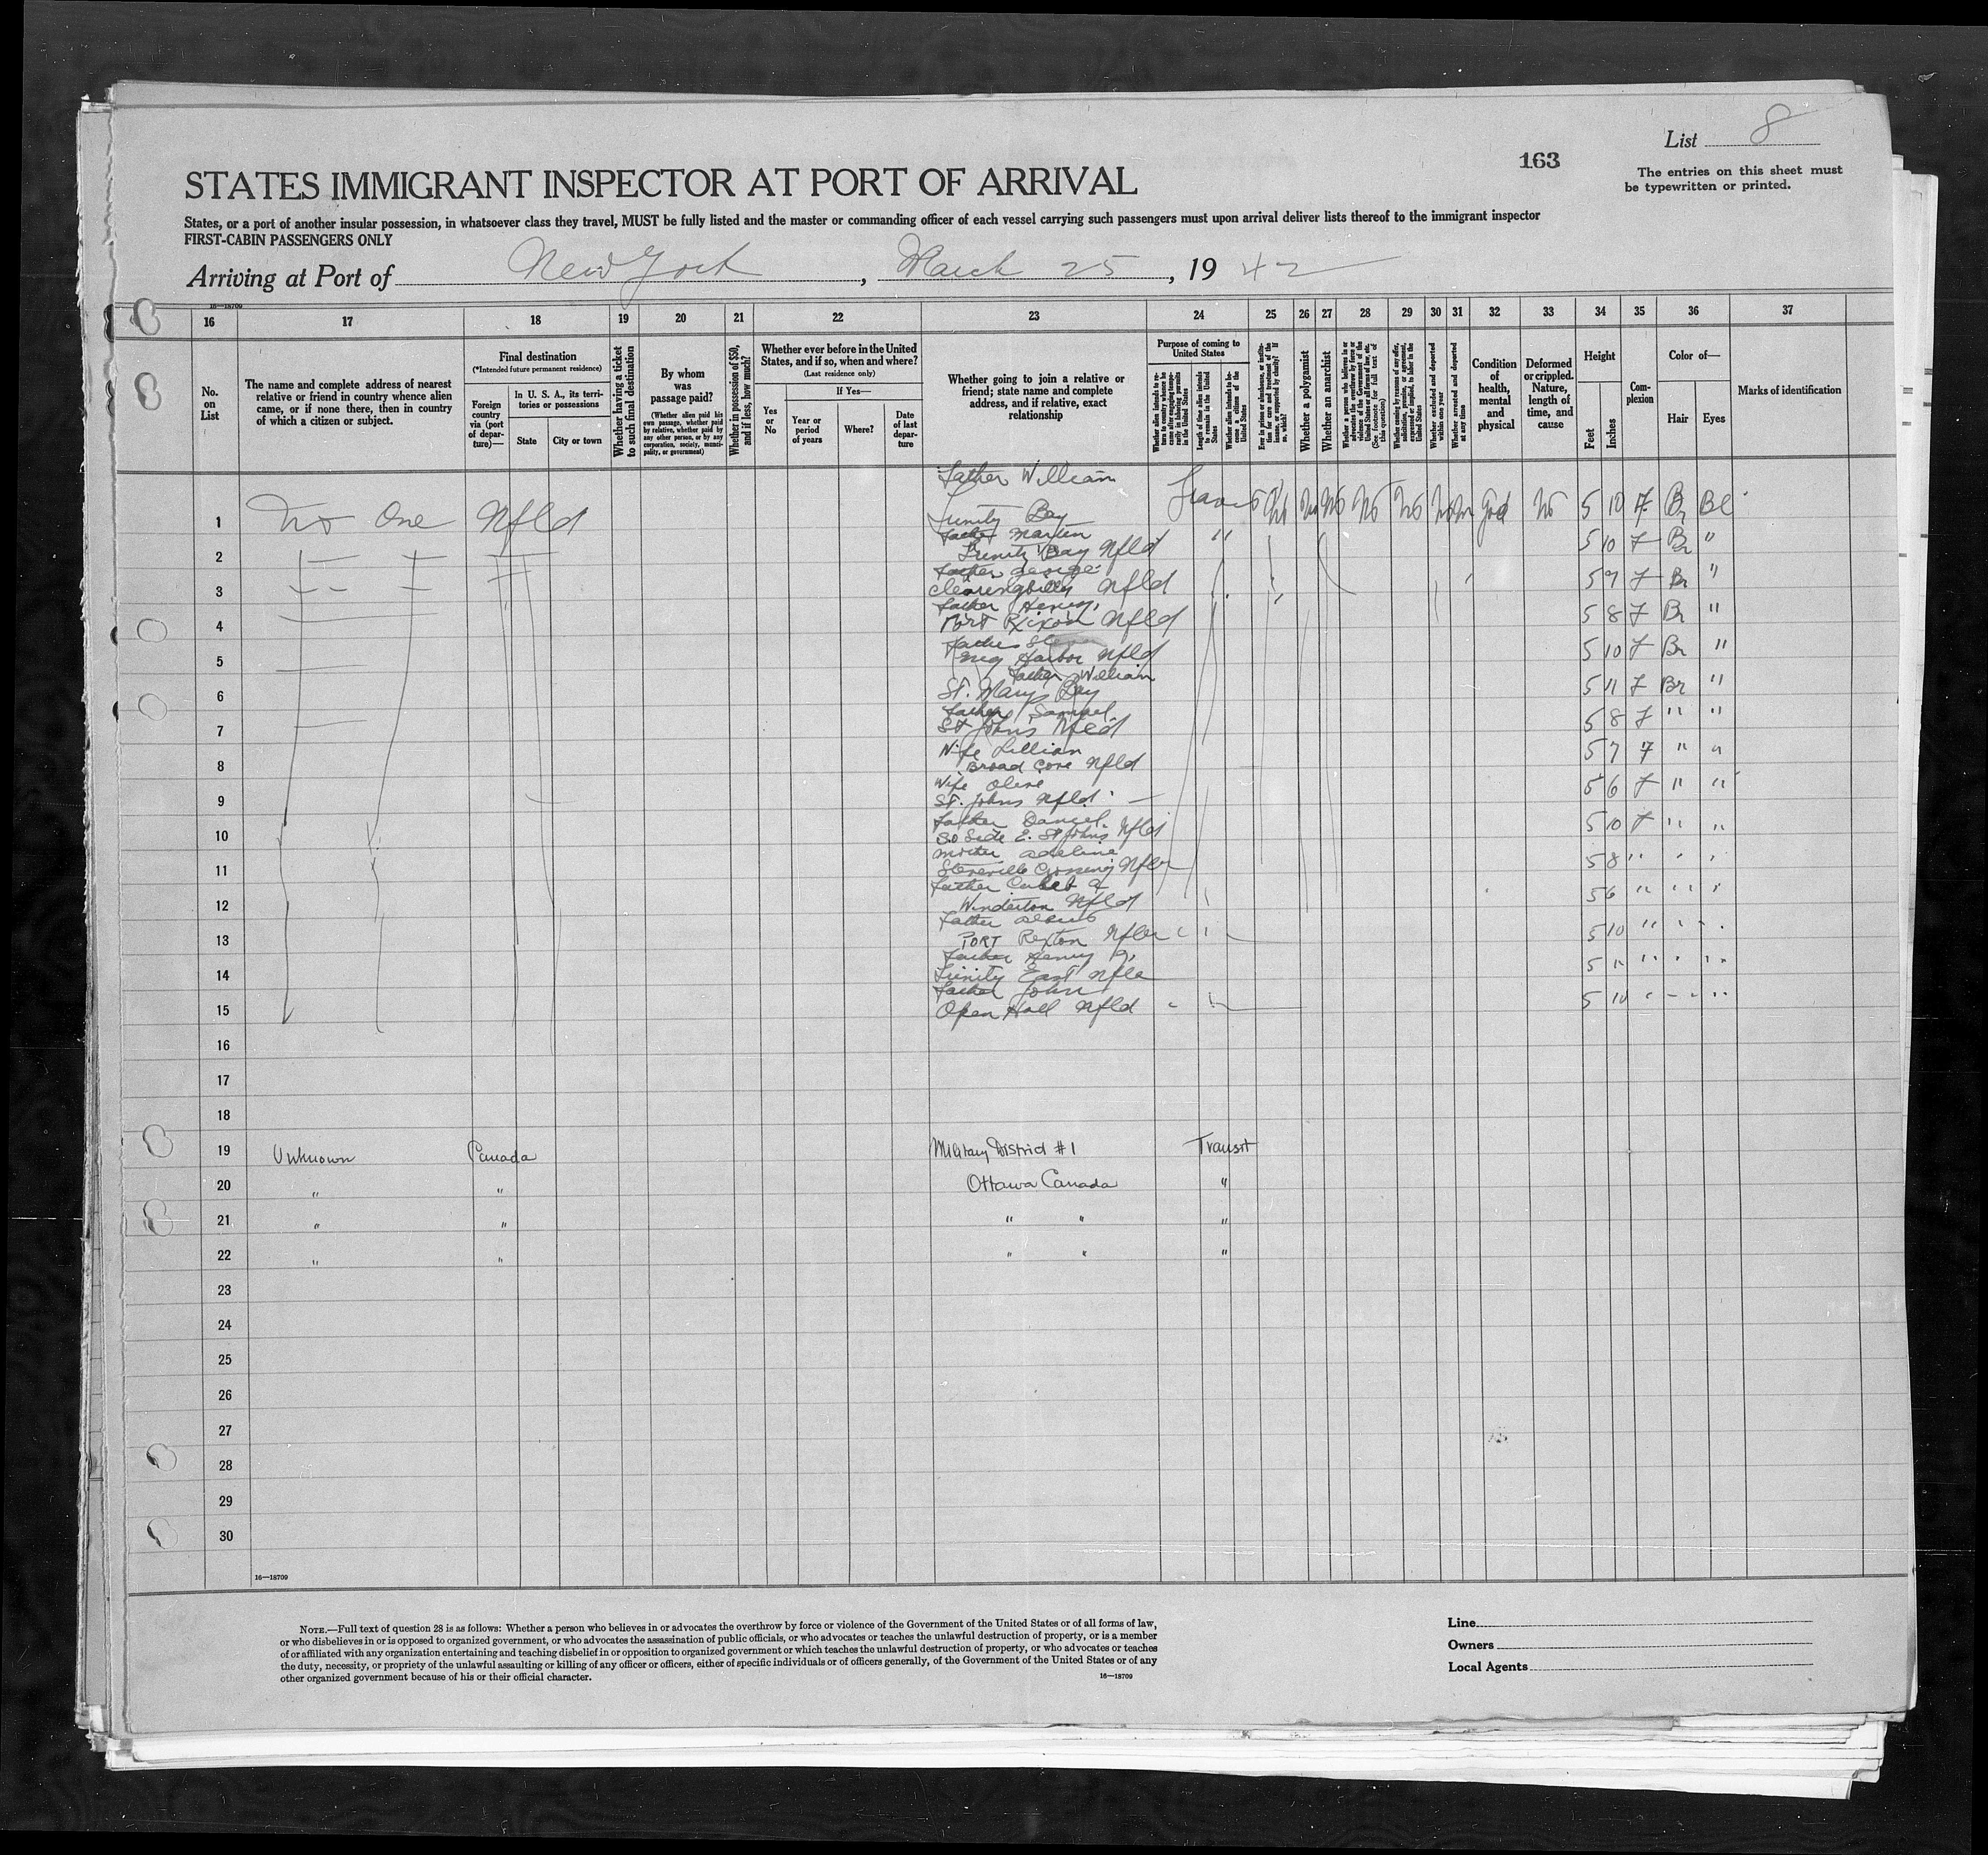 List 8
163
The entries on this sheet must
be typewritten or printed.
STATES IMMIGRANT INSPECTOR AT PORT OF ARRIVAL
States, or a port of another insular possession, in whatsoever class they travel, MUST be fully listed and the master or commanding officer of each vessel carrying such passengers must upon arrival deliver lists thereof to the immigrant inspector
FIRST-CABIN PASSENGERS ONLY
Arriving at Port of New York, March 25, 1942
16—18709
16 17 18 19 20 21 22 23 24 25 26 27 28 29 30 31 32 33 34 35 36 37
No. on List
The name and complete address of nearest relative or friend in country whence alien came, or if none there, then in country of which a citizen or subject.
Final destination
(*Intended future permanent residence)
Foreign country via (port of departure)—
In U. S. A., its territories or possessions
State
City or town
Whether having a ticket to such final destination
By whom was passage paid?
(Whether alien paid his own passage, whether paid by relative, whether paid by any other person, or by any corporation, society, municipality, or government)
Whether in possession of $50, and if less, how much?
Whether ever before in the United States, and if so, when and where?
(Last residence only)
Yes or No
If Yes—
Year or period of years
Where?
Date of last departure
Whether going to join a relative or friend; state name and complete address, and if relative, exact relationship
Purpose of coming to United States
Whether alien intends to return to country whence he came after engaging temporarily in laboring pursuits in the United States
Length of time alien intends to remain in the United States
Whether alien intends to become a citizen of the United States
Ever in prison or almshouse, or institution for care and treatment of the insane, or supported by charity? If so, which?
Whether a polygamist
Whether an anarchist
Whether a person who believes in or advocates the overthrow by force or violence of the Government of the United States or of all forms of law, etc. (See footnote for full text of this question)
Whether coming by reasons of any offer, solicitation, promise, or agreement, expressed or implied, to labor in the United States
Whether excluded and deported within one year
Whether arrested and deported at any time
Condition of health, mental and physical
Deformed or crippled. Nature, length of time, and cause
Height
Feet
Inches
Complexion
Color of—
Hair
Eyes
Marks of identification
Father William
1 No One Nfld Trinity Bay No No No No No No No No 5 10 F Br Bl
Father Martin
2 Trinity Bay Nfld " 5 10 F Br "
Father George
3 Nfld 5 9 F Br "
Father Henry
4 Port Nfld 5 8 F Br "
Father
5 Harbor Nfld 5 10 F Br "
Father William
6 St. Marys Bay 5 11 F Br "
Father Samuel
7 St Johns Nfld 5 8 F " "
Wife Lillian
8 Broad Cove Nfld 5 7 F " "
Wife Olive
9 St. Johns Nfld 5 6 F " "
Father Daniel
10 So Side E. St Johns Nfld 5 10 F " "
Mother Adeline
11 Crossing Nfld 5 8 " " "
Father
12 Nfld 5 6 " " "
Father
13 Port Rexton Nfld 5 10 " " "
Father Henry
14 Trinity East Nfld 5 " " " "
Father John
15 Open Hall Nfld 5 10 " " "
16
17
18
19 Unknown Canada Military District #1 Transit
20 " " Ottawa Canada "
21 " " " " "
22 " " " " "
23
24
25
26
27
28
29
30
16—18709
NOTE.—Full text of question 28 is as follows: Whether a person who believes in or advocates the overthrow by force or violence of the Government of the United States or of all forms of law,
or who disbelieves in or is opposed to organized government, or who advocates the assassination of public officials, or who advocates or teaches the unlawful destruction of property, or is a member
of or affiliated with any organization entertaining and teaching disbelief in or opposition to organized government or which teaches the unlawful destruction of property, or who advocates or teaches
the duty, necessity, or propriety of the unlawful assaulting or killing of any officer or officers, either of specific individuals or of officers generally, of the Government of the United States or of any
other organized government because of his or their official character.
16—18709
Line
Owners
Local Agents